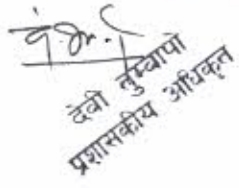 देवी लुम्बापो
प्रशासकीय अधिकृत